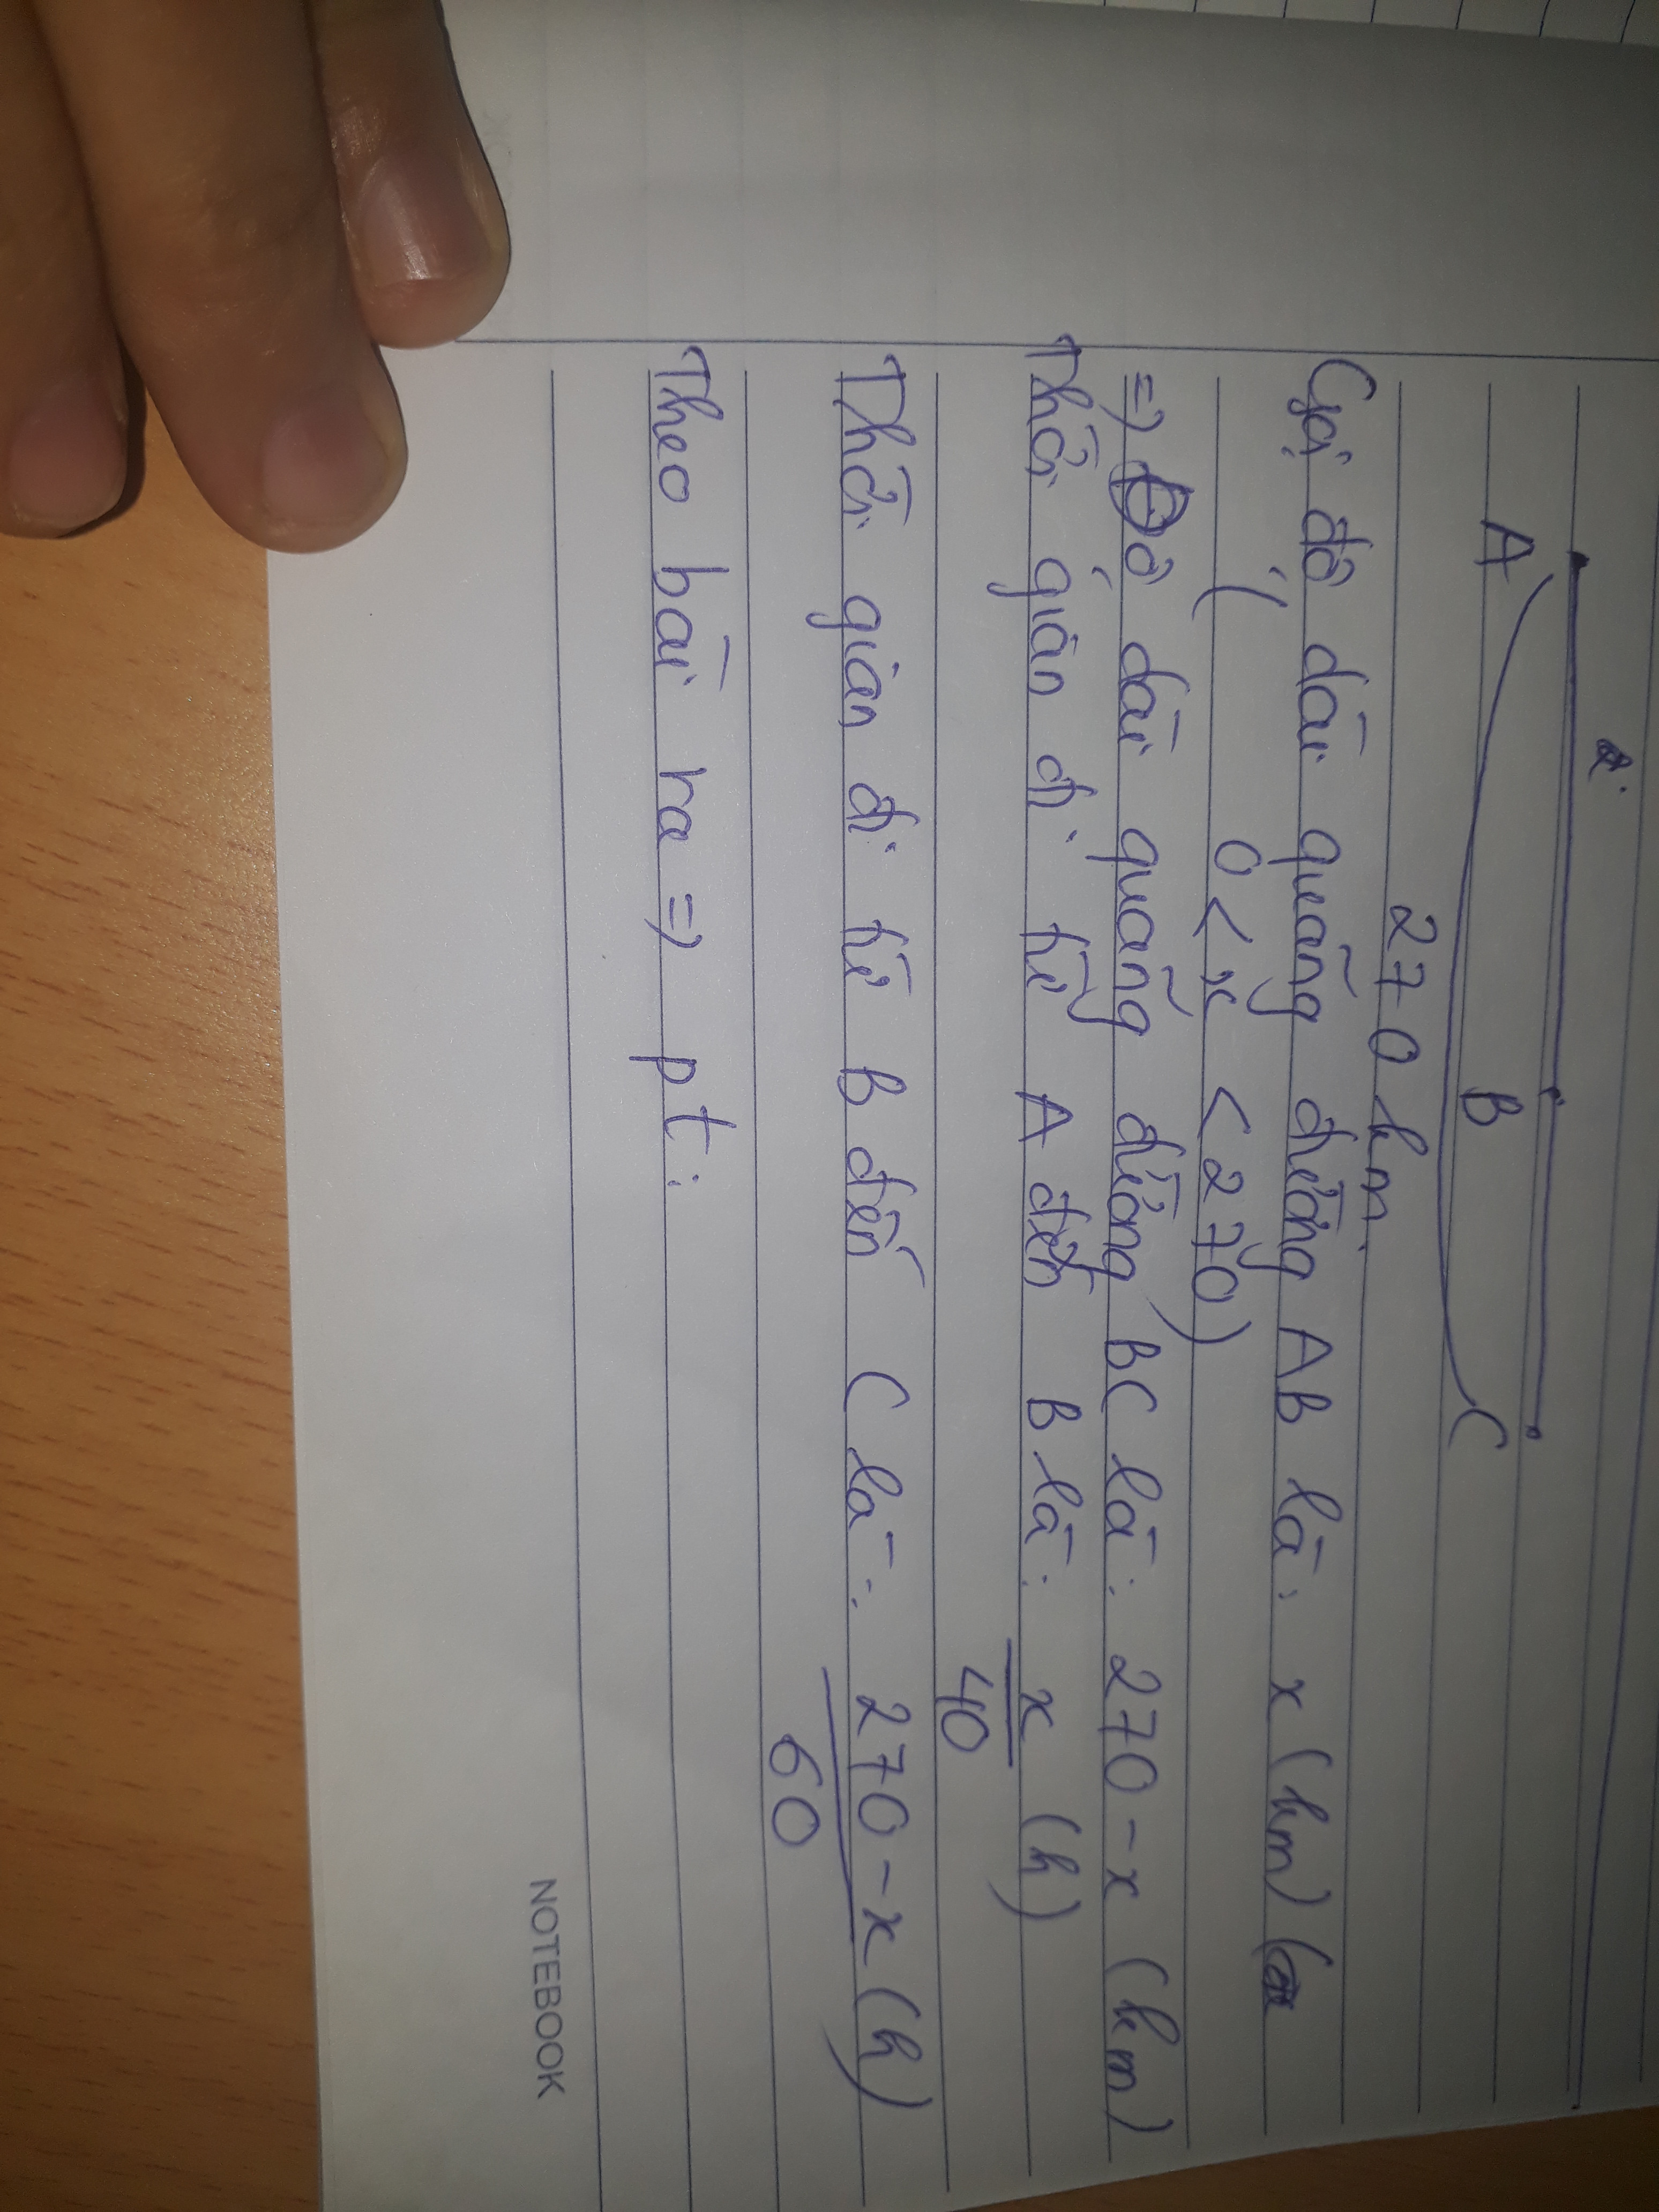 A B C
270 km.
Gọi độ dài quãng đường AB là: x (km) (
0 < x < 270)
=> Độ dài quãng đường BC là: 270 - x (km)
Thời gian đi từ A đến B là: x/40 (h)
Thời gian đi từ B đến C là: 270 - x/60 (h)
Theo bài ra => pt:
NOTEBOOK